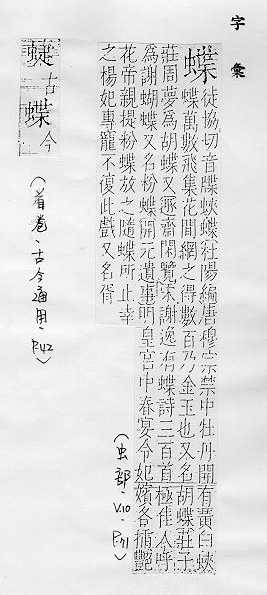 字彙
蝶徒協切音牒蛺蝶杜陽編唐穆宗禁中牡丹開有黃白蛺
蝶萬數飛集花間網之得數百乃金玉也又名胡蝶莊子
莊周夢爲胡蝶又遯齋閒覽宋謝逸有蝶詩三百首極佳人呼
爲謝蝴蝶又名粉蝶開元遺事明皇宮中春宴令妃嬪各插艷
花帝親捉粉蝶放之隨蝶所止幸
之楊妃專寵不復此戲又名胥
(虫部、V.10、P.71)
蜨古蝶今
(首卷、古今通用、P.42)